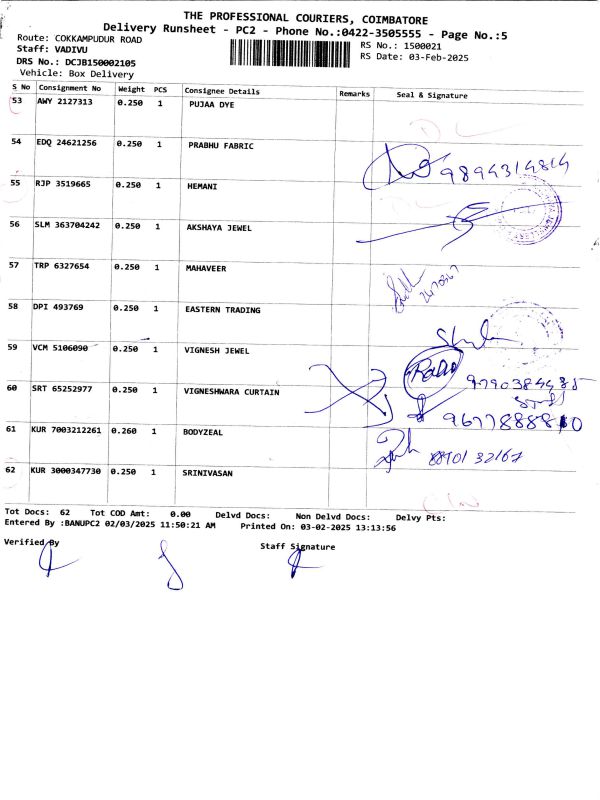 THE PROFESSIONAL COURIERS, COIMBATORE
Delivery Runsheet - PC2 - Phone No.:0422-3505555 - Page No.:5
Route: COKKAMPUDUR ROAD
RS No.: 1500021
Staff: VADIVU
RS Date: 03-Feb-2025
DRS No.: DCJB150002105
Vehicle: Box Delivery
S No Consignment No Weight PCS Consignee Details Remarks Seal & Signature
53 AWY 2127313 0.250 1 PUJAA DYE
54 EDQ 24621256 0.250 1 PRABHU FABRIC
9894314814
55 RJP 3519665 0.250 1 HEMANI
56 SLM 363704242 0.250 1 AKSHAYA JEWEL
57 TRP 6327654 0.250 1 MAHAVEER
58 DPI 493769 0.250 1 EASTERN TRADING
59 VCM 5106090 0.250 1 VIGNESH JEWEL
60 SRT 65252977 0.250 1 VIGNESHWARA CURTAIN
61 KUR 7003212261 0.260 1 BODYZEAL
62 KUR 3000347730 0.250 1 SRINIVASAN
Tot Docs: 62 Tot COD Amt: 0.00 Delvd Docs: Non Delvd Docs: Delvy Pts:
Entered By :BANUPC2 02/03/2025 11:50:21 AM Printed On: 03-02-2025 13:13:56
Verified By
Staff Signature